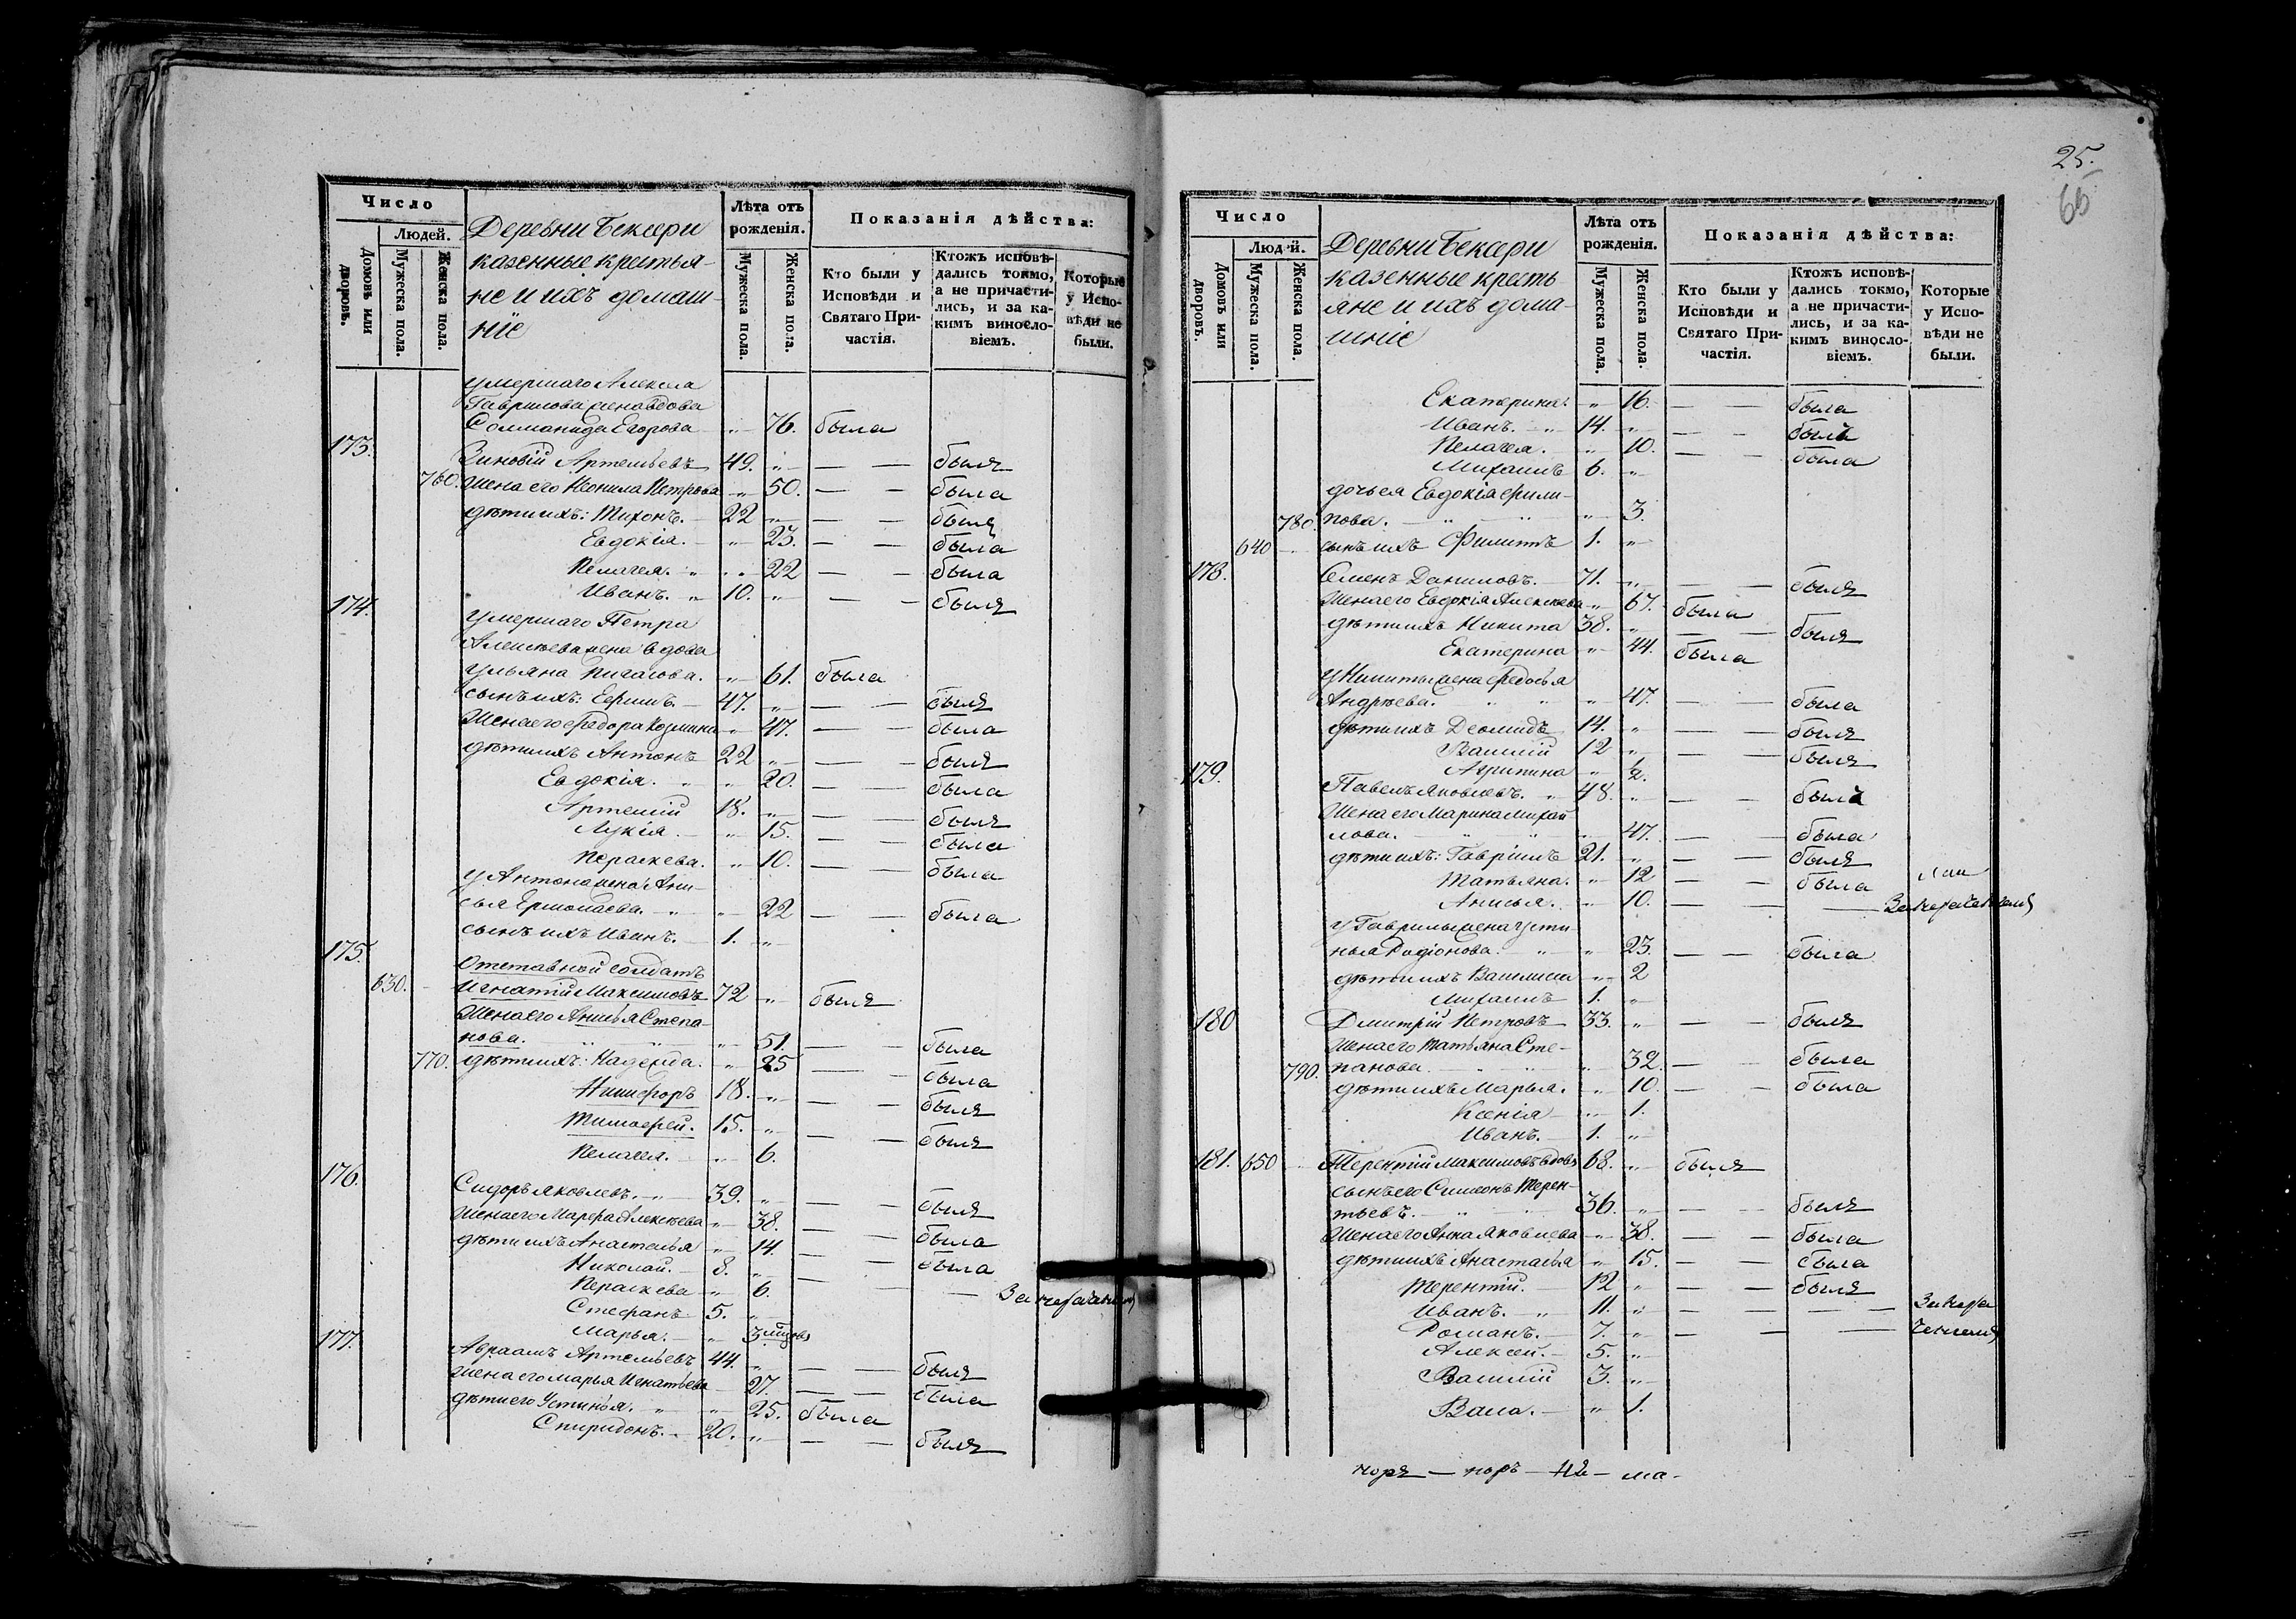 Число
Людей.
Домовъ или дворовъ.
Мужеска пола.
Женска пола.
Деревни Бексери
казенные крестья-
не и ихъ домаш-
ніе
Лѣта отъ рожденія.
Мужеска пола.
Женска пола.
Показанія дѣйства:
Кто были у Исповѣди и Святаго При-частія.
Ктожъ исповѣ-дались токмо, а не причасти-лись, и за ка-кимъ винosло-віемъ.
Которые у Испо-вѣди не были.
умершаго
Гаврилова жена вдова
173. Соломанида Егорова " 76. была
Зиновій Артемьевъ 49. " — — былъ
760. Жена его Неонила Петрова " 50. — — была
дѣти ихъ: Тихонъ. 22 " — — былъ
Евдокія. " 23. — — была
Пелагея. " 22 — — была
Иванъ. " 10. " — — былъ
174. умершаго Петра
Алексѣева жена вдова
Ульяна " 61. была
сынъ ихъ: Ефимъ. 47. " — — былъ
Жена его Федора Козмина " 47. — — была
дѣти ихъ Антонъ 22 " — — былъ
Евдокія. " 20. — — была
Артемій 18. " — — былъ
Лукія. " 15. — — была
Параскева. " 10. — — была
у Антона жена Ани-
сья Ермолаева. " 22 — — была
сынъ ихъ Иванъ. 1. "
175. Отставной солдатъ
630. Игнатій Максимовъ 72 " былъ
Жена его Анисья Степа-
нова. " 51. — — была
770. дѣти ихъ: Надежда. " 25 — — была
Никифоръ 18. " — — былъ
Тимофей. 15. " — — былъ
Пелагея. " 6.
176. Сидоръ Яковлевъ. 39. " — — былъ
Жена его Марфа Алексѣева " 38. — — была
дѣти ихъ Анастасья " 14. — — была
Николай. 8. "
Параскева " 6. — —
Стефанъ 5. "
Марья. " 3
177. Авраамъ Артемьевъ 44. " — — былъ
Жена его Марья Игнатьева 27. — — была
дѣти его Устинья. " 25. была
Спиридонъ. 20. " — — былъ
25.
66
Число
Людей.
Домовъ или дворовъ.
Мужеска пола.
Женска пола.
Деревни Бексери
казенные кресть
яне и ихъ дома-
шніе
Лѣта отъ рожденія.
Мужеска пола.
Женска пола.
Показанія дѣйства:
Кто были у Исповѣди и Святаго При-частія.
Ктожъ исповѣ-дались токмо, а не причасти-лись, и за ка-кимъ винosло-віемъ.
Которые у Испо-вѣди не были.
Екатерина. " 16. — — была
Иванъ. " 14. " — — былъ
Пелагея. " 10. — — была
Михаилъ 6. "
дочь ея Евдокія Фили-
780. пова. " 3.
640 сынъ ихъ Филиппъ 1. "
178. Семенъ Даниловъ. 71. " — — былъ
Жена его Евдокія Алексѣева " 67. была
дѣти ихъ Никита 38. " — — былъ
Екатерина " 44. была
у Никиты жена Федосья
Андрѣева. " 47. — — была
дѣти ихъ Деомидъ 14. " — — былъ
Василій 12 " — — былъ
Агрипина " 2.
179. Павелъ Яковлевъ. 48. " — — былъ
Жена его Марина Михай
лова. " 47. — — была
дѣти ихъ: Гавріилъ 21. " — — былъ
Татьяна. " 12 — — была
Анисья. " 10. — — —
у Гаврилы жена Усти-
нья Родіонова. " 23. — — была
дѣти ихъ Василиса " 2
Михаилъ 1. "
180 Дмитрій Петровъ 33. " — — былъ
Жена его Татьяна Сте-
790. панова. " 32. — — была
дѣти ихъ Марья. " 10. — — была
Ксенія " 1.
Иванъ. 1. "
181. 650 Терентій Максимовъ вдовъ 68. " былъ
сынъ его Симеонъ Терен-
тьевъ. 36. " — — былъ
Жена его Анна Яковлева " 38. — — была
дѣти ихъ Анастасья " 15. — — была
Терентій. 12 " — — былъ
Иванъ. " 11. " — — —
Романъ. 7. " — — —
Алексей. 5. "
Василій 3. "
Васса. " 1.